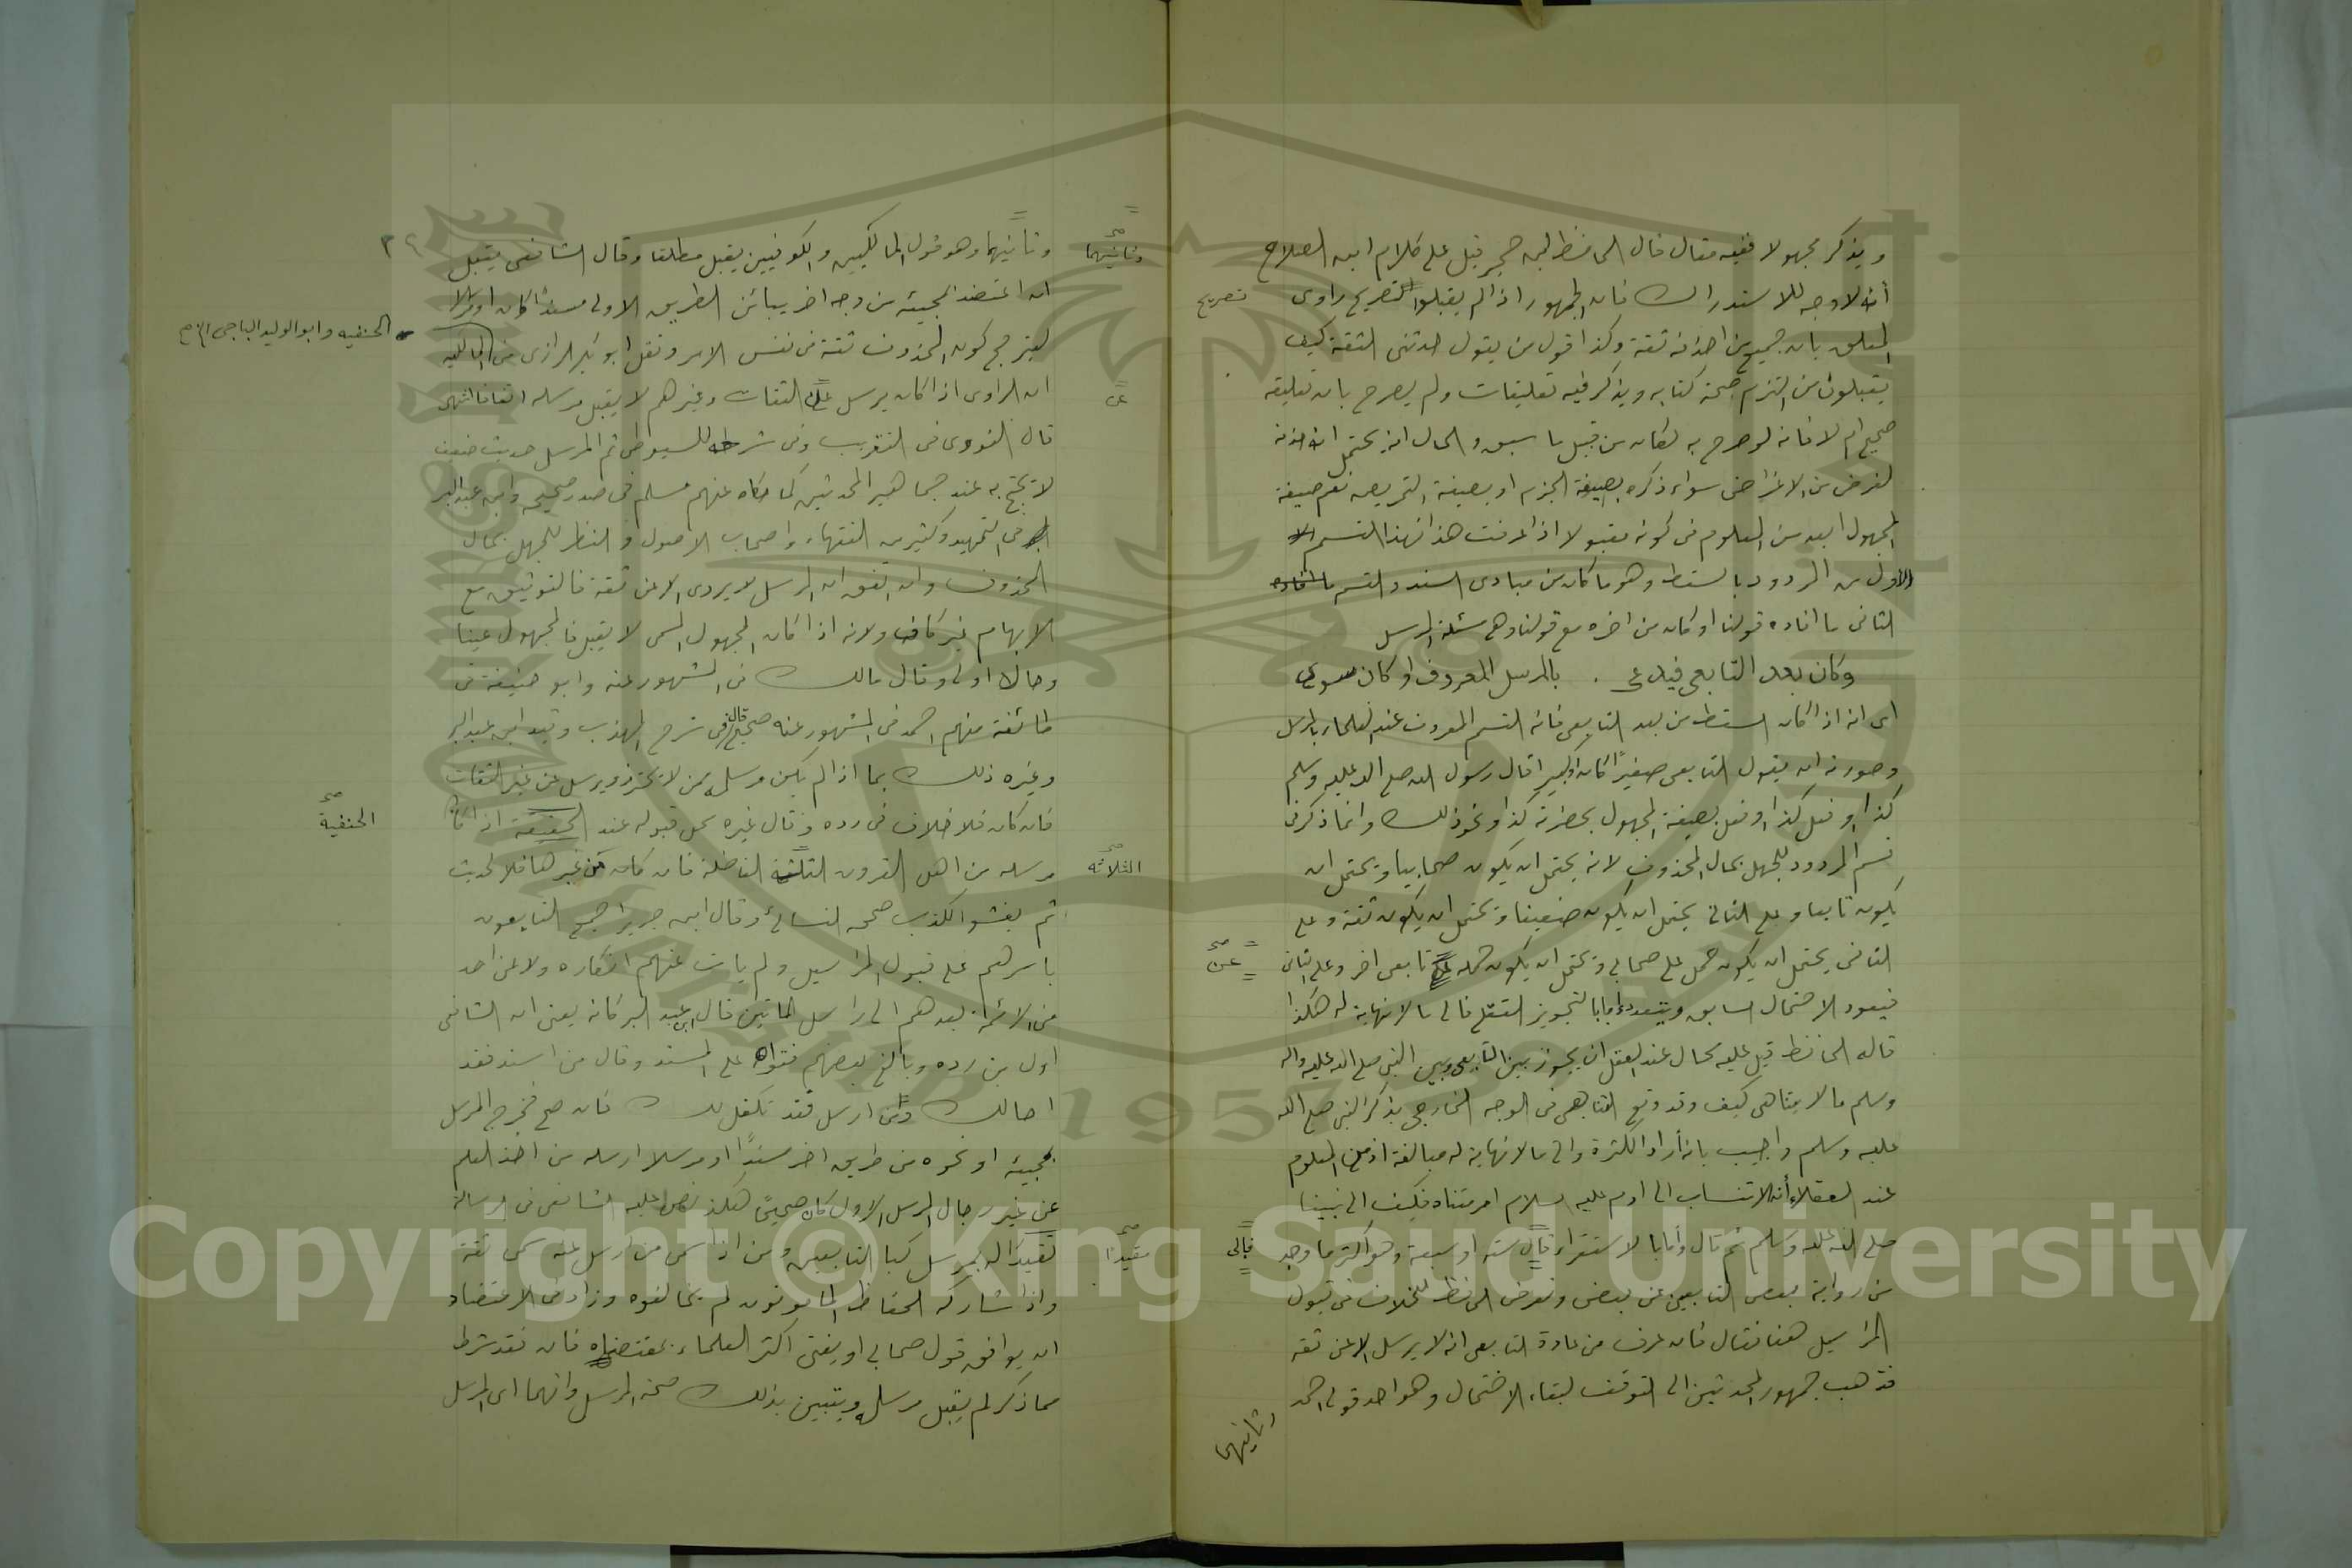 ويذكر مجهولا ففيه مقال قال الحافظ ابن حجر قيل على كلام ابن الصلاح
أنه لا وجه للاستدراك فان الجمهور اذا لم يقبلوا تصريح راوى
تصريح
المعلق بان جميع من احذفه ثقة وكذا قول من يقول حدثنى الثقة كيف
يقبلون من التزم صحة كتابه ويذكر فيه تعليقات ولم يصرح بان تعليقه
صحيح ام لا فانه لو صرح به لكان من قبيل ما سبق والحال انه يحتمل انه حذفه
لغرض من الاغراض سواء ذكره بصيغة الجزم او بصيغة التمريض نعم صيغة
المجهول ابعد من المعلوم فى كونه مقبولا اذا عرفت هذا فهذا القسم
الاول من المردود بالسقط وهو ما كان من مبادى السند والقسم
الثانى ما افاده قولنا او كان من اخره مع قولنا وهى مسئلة المرسل
وكان بعد التابعى فيدعى . بالمرسل المعروف او كان سوى
اى انه اذا كان السقط من بعد التابعى فانه القسم المعروف عند العلماء بالمرسل
وصورته ان يقول التابعى صغيرًا كان او كبيرا قال رسول الله صلى الله عليه وسلم
كذا او فعل كذا او فعل بصيغة المجهول بحضرته كذا او نحو ذلك وانما ذكر فى
قسم المردود للجهل بحال المحذوف لانه يحتمل ان يكون صحابيا ويحتمل ان
يكون تابعيا وعلى الثانى يحتمل ان يكون ضعيفا ويحتمل ان يكون ثقة وعلى
الثانى يحتمل ان يكون حمل على صحابى ويحتمل ان يكون حمله عن تابعى اخر وعلى الثانى
عن
فيعود الاحتمال السابق ويتعدد اما بالتجويز العقلى فالى ما لا نهاية له هكذا
قاله الحافظ قيل عليه محال عند العقل ان يجوز بين التابعى وبين النبى صلى الله عليه واله
وسلم ما لا يتناهى كيف وقد وقع التناهى فى الوجه الخارجى بذكر النبى صلى الله
عليه وسلم واجيب بانه أراد الكثرة والى ما لا نهاية له مبالغة اذ من المعلوم
عند العقلاء أنه الانتساب الى ادم عليه السلام امر متناه فكيف الى نبينا
صلى الله عليه وسلم ثم قال وأما بالاستقراء فالى ستة او سبعة وهو اكثر ما وجد
فالى
من رواية بعض التابعين عن بعض وتعرض الحافظ للخلاف فى قبول
المراسيل هنا فقال فان عرف من عادة التابعى انه لا يرسل الا عن ثقه
فذهب جمهور المحدثين الى التوقف لبقاء الاحتمال وهو احد قولى احمد
وثانيهما
وثانيهما وهو قول المالكيين والكوفيين يقبل مطلقا وقال الشافعى يقبل
وثانيهما
ان اعتضد بمجيئه من وجه اخر يباين الطريق الاولى مسندًا كان او مرسلا
ليترجح كون المحذوف ثقة فى نفس الامر ونقل ابو بكر الرازى من المالكيه
الحنفيه وابو الوليد الباجى
ان الراوى اذا كان يرسل عن الثقات وغيرهم لا يقبل مرسله اتفاقا انتهى
عن
قال النووى فى التقريب وفى شرحه للسيوطى ثم المرسل حديث ضعيف
لا يحتج به عند جماهير المحدثين كما حكاه عنهم مسلم فى صدر صحيحه وابن عبد البر
فى التمهيد وكثير من الفقهاء واصحاب الاصول والنظر للجهل بحال
المحذوف وان اتفق ان المرسل لا يروى الا عن ثقة فالتوثيق مع
الابهام غير كاف ولانه اذا كان المجهول المسمى لا يقبل فالمجهول عينا
وحالا اولى وقال مالك فى المشهور عنه وابو حنيفة فى
طائفة منهم احمد فى المشهور عنه صحيح قال فى شرح المهذب وقيد ابن عبد البر
وغيره ذلك بما اذا لم يكن مرسله ممن لا يحترز ويرسل عن غير الثقات
فان كان فلا خلاف فى رده وقال غيره محل قبوله عند الحنفية اذا كان
الحنفية
مرسله من اهل القرون الثلثة الفاضلة فان كان من غيرها فلا لحديث
الثلاثه
ثم يفشو الكذب صححه النسائى وقال ابن جرير اجمع التابعون
باسرهم على قبول المراسيل ولم يات عنهم انكاره ولا عن احد
من الائمة بعدهم الى راس الماتين قال ابن عبد البر كانه يعنى ان الشافعى
اول من رده وبالغ بعضهم فقواه على المسند وقال من اسند فقد
احالك ومن ارسل فقد تكفل لك فان صح مخرج المرسل
بمجيئه او نحوه من طريق اخر مسندًا او مرسلا ارسله من اخذ العلم
عن غير رجال المرسل الاول كان صحيحًا هكذا نص عليه الشافعى فى الرسالة
مقيدًا له بمرسل كبار التابعين ومن اذا سمى من ارسل عنه سمى ثقة
مقيدًا
واذا شاركه الحفاظ المامونون لم يخالفوه وزاد فى الاعتضاد
ان يوافق قول صحابى او يفتى اكثر العلماء بمقتضاه فان فقد شرط
مما ذكر لم يقبل مرسله ويتبين بذلك صحة المرسل وانهما اى المرسل
Copyright © King Saud University
1957